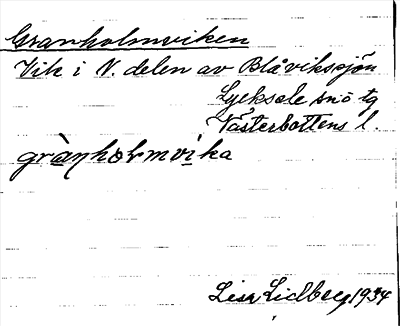 Granholmviken
Vik i N. delen av Blåviksjön
Lycksele snö tg
Västerbottens l.
grànhɔlmvika
Lisa Lidberg 1934